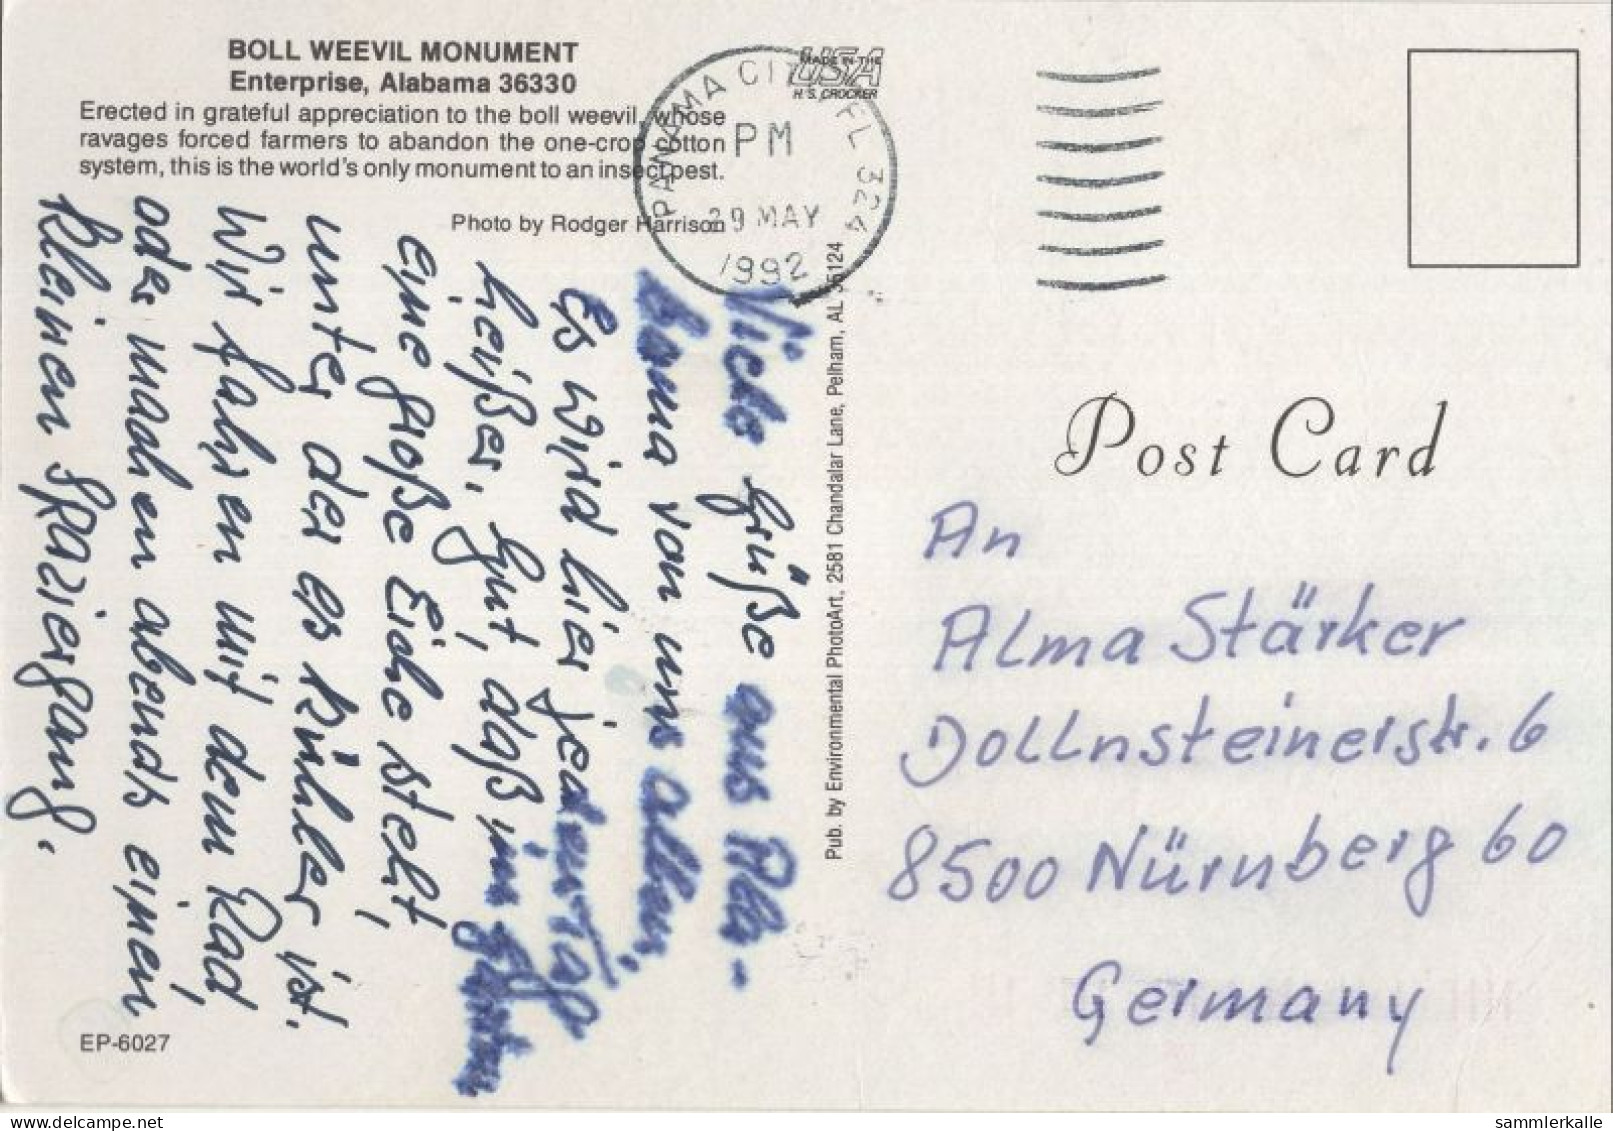 BOLL WEEVIL MONUMENT
Enterprise, Alabama 36330
Erected in grateful appreciation to the boll weevil, whose
ravages forced farmers to abandon the one-crop cotton
system, this is the world's only monument to an insect pest.
Photo by Rodger Harrison
MADE IN THE
USA
H.S. CROCKER
PANAMA CITY FL 324
PM
29 MAY
1992
Viele Grüße aus Ala-
bama von uns allen.
Es wird hier jeden Tag
heißer. Gut, daß im Garten
eine große Eiche steht,
unter der es kühler ist.
Wir fahren mit dem Rad
oder machen abends einen
kleinen Spaziergang.
Pub. by Environmental PhotoArt, 2581 Chandalar Lane, Pelham, AL 35124
Post Card
An
Alma Stärker
Dollnsteinerstr. 6
8500 Nürnberg 60
Germany
EP-6027
sammlerkalle